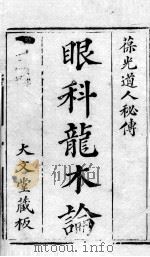 葆光道人秘傳
眼科龍木論
大文堂藏板
http://www.gmzm.org